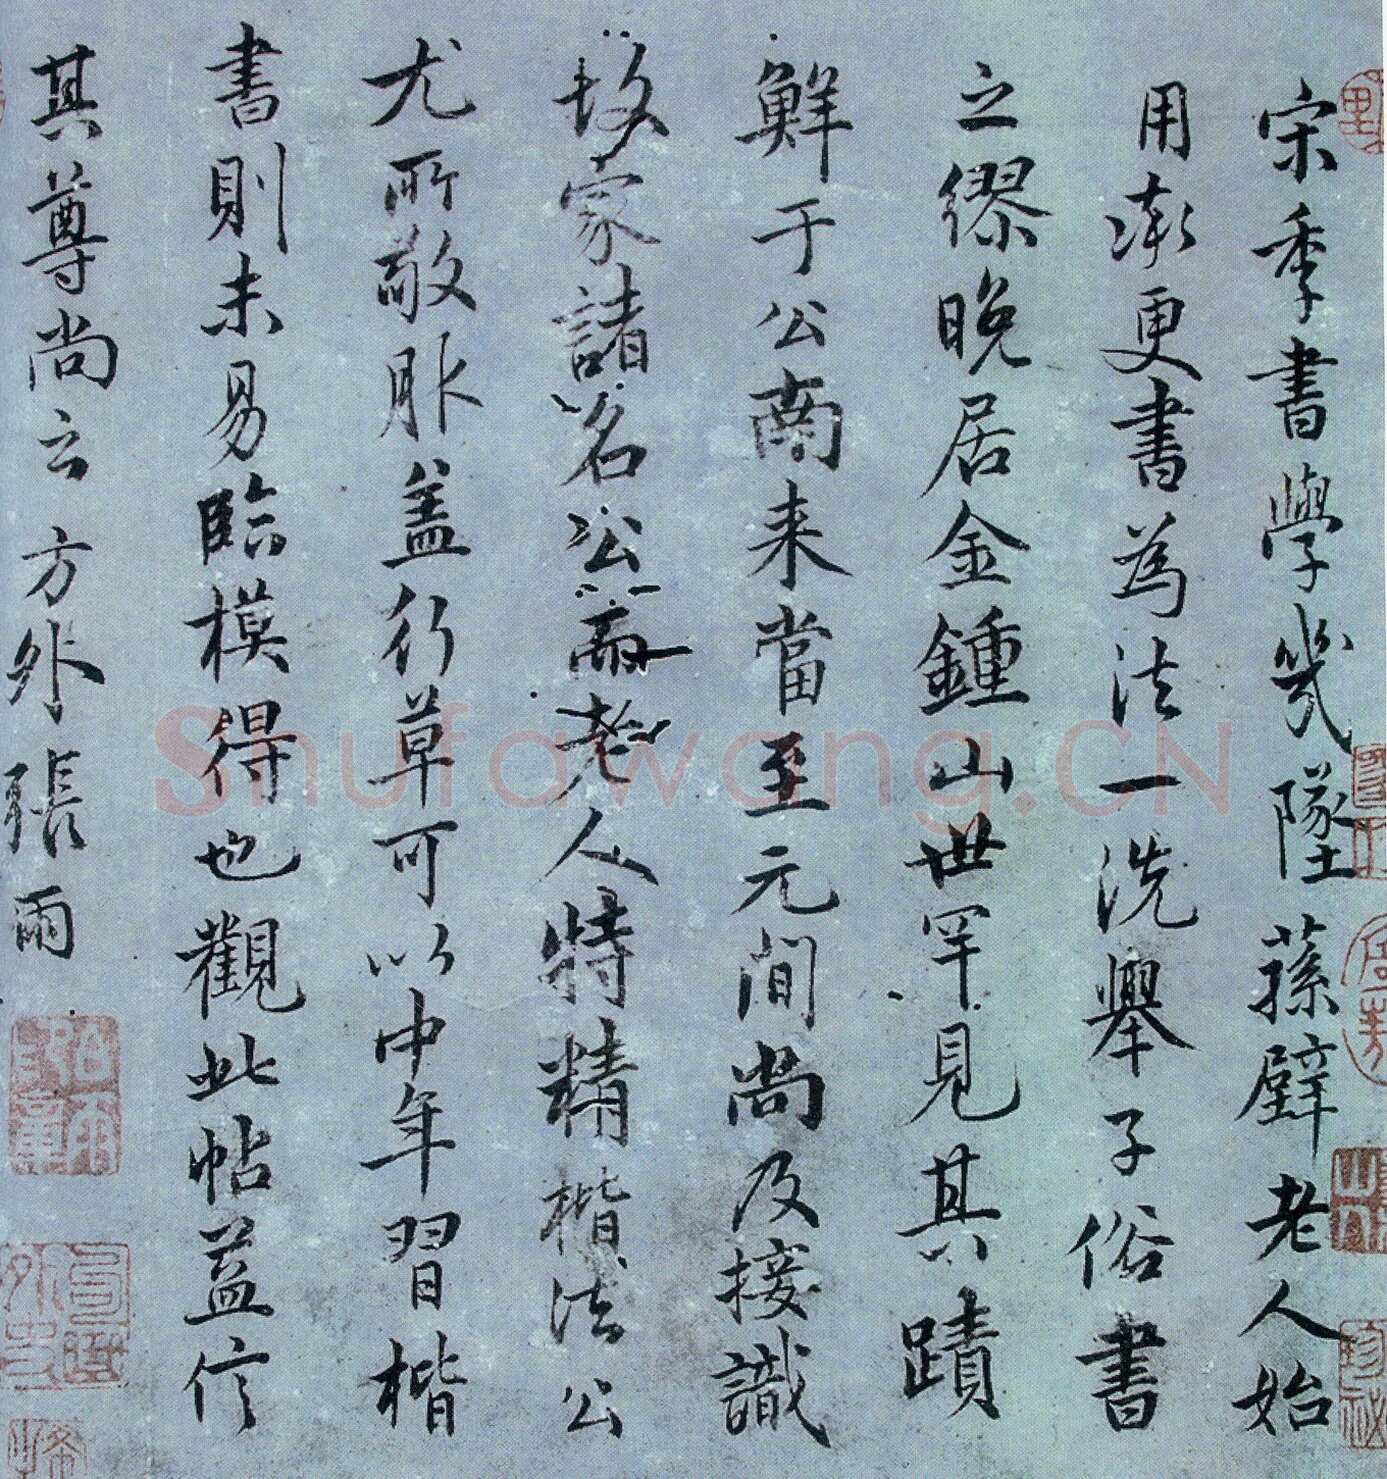 宋季書學幾墜蓀壁老人始
用率更書為法一洗舉子俗書
之繆晚居金鍾山世罕見其蹟
鮮于公南来當至元間尚及接識
故家諸名公而老人特精楷法公
尤所敬服盖行草可以中年習楷
書則未易臨模得也觀此帖益信
其尊尚云 方外張雨
Shufawang.CN